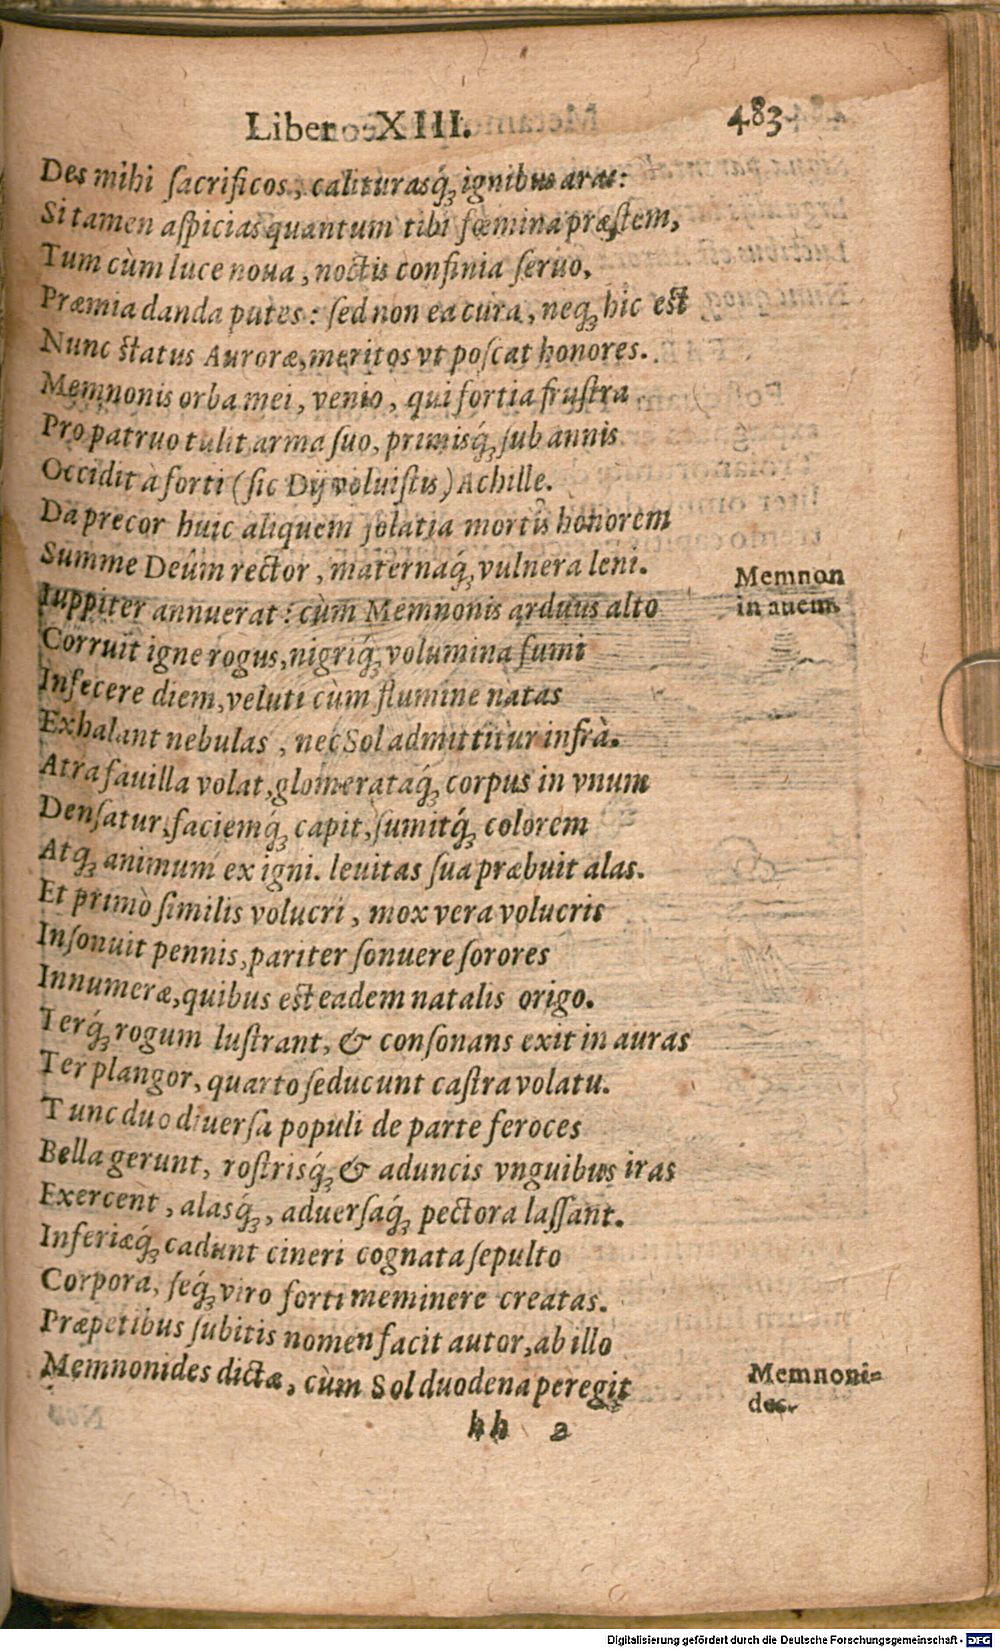 Liber XIII. 483
Des mihi ſacrificos, caliturasq́; ignibus aras:
Si tamen aſpicias quantum tibi fœmina præſtem,
Tum cùm luce noua, noctis confinia ſeruo,
Præmia danda putes: ſed non ea cura, neq; hic est
Nunc status Auroræ, meritos vt poſcat honores.
Memnonis orba mei, venio, qui fortia fruſtra
Pro patruo tulit arma ſuo, primisq́; ſub annis
Occidit à forti (ſic Dij voluiſtis) Achille.
Da precor huic aliquem ſolatia mortis honorem
Summe Deûm rector, maternaq́; vulnera leni.
Iuppiter annuerat: cùm Memnonis arduus alto
Memnon
in auem.
Corruit igne rogus, nigriq́; volumina fumi
Infecere diem, veluti cùm flumine natas
Exhalant nebulas, nec Sol admittitur infrà.
Atra fauilla volat, glomerataq́; corpus in vnum
Denſatur, faciemq́; capit, ſumitq́; colorem
Atq; animum ex igni. leuitas ſua præbuit alas.
Et primò ſimilis volucri, mox vera volucris
Inſonuit pennis, pariter ſonuere ſorores
Innumeræ, quibus est eadem natalis origo.
Terq́; rogum luſtrant, & conſonans exit in auras
Ter plangor, quarto ſeducunt caſtra volatu.
Tunc duo diuerſa populi de parte feroces
Bella gerunt, roſtrisq́; & aduncis vnguibus iras
Exercent, alasq́;, aduerſaq́; pectora laſſant.
Inferiæq́; cadunt cineri cognata ſepulto
Corpora, ſeq́; viro forti meminere creatas.
Præpetibus ſubitis nomen facit autor, ab illo
Memnonides dictæ, cùm Sol duodena peregit
Memnoni-
des.
hh 2
Digitalisierung gefördert durch die Deutsche Forschungsgemeinschaft - DFG